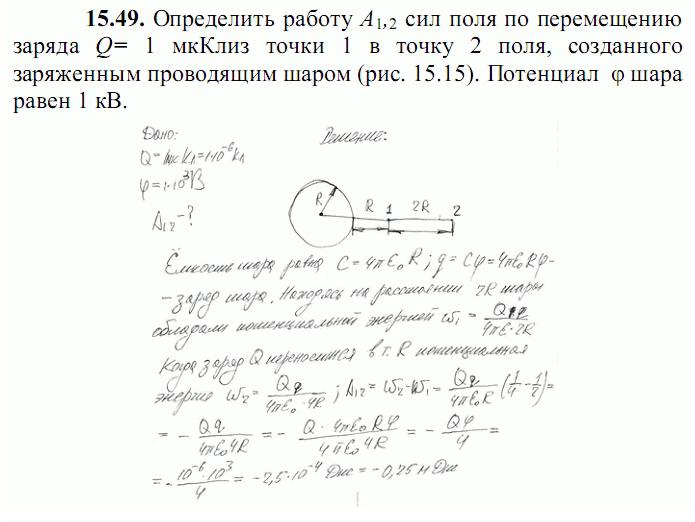 15.49. Определить работу A1,2 сил поля по перемещению
заряда Q= 1 мкКлиз точки 1 в точку 2 поля, созданного
заряженным проводящим шаром (рис. 15.15). Потенциал φ шара
равен 1 кВ.
Дано: Решение:
Q=1мкКл=1·10⁻⁶Кл
φ=1·10³В
A12-?
R R 1 2R 2
Ёмкость шара равна C=4πε₀R; q=Cφ=4πε₀Rφ-
-заряд шара. Находясь на расстоянии 2R шары
обладали потенциальной энергией ω₁ = Qq/4πε·2R
Когда заряд Q переносится в т. R потенциальная
энергия ω₂ = Qq/4πε₀·4R ; A12=ω₂-ω₁= Qq/4πε₀R (1/4 - 1/2)=
= - Qq/4πε₀4R = - Q·4πε₀Rφ/4πε₀4R = - Qφ/4 =
= - 10⁻⁶·10³/4 = -2,5·10⁻⁴ Дж = -0,25 м Дж